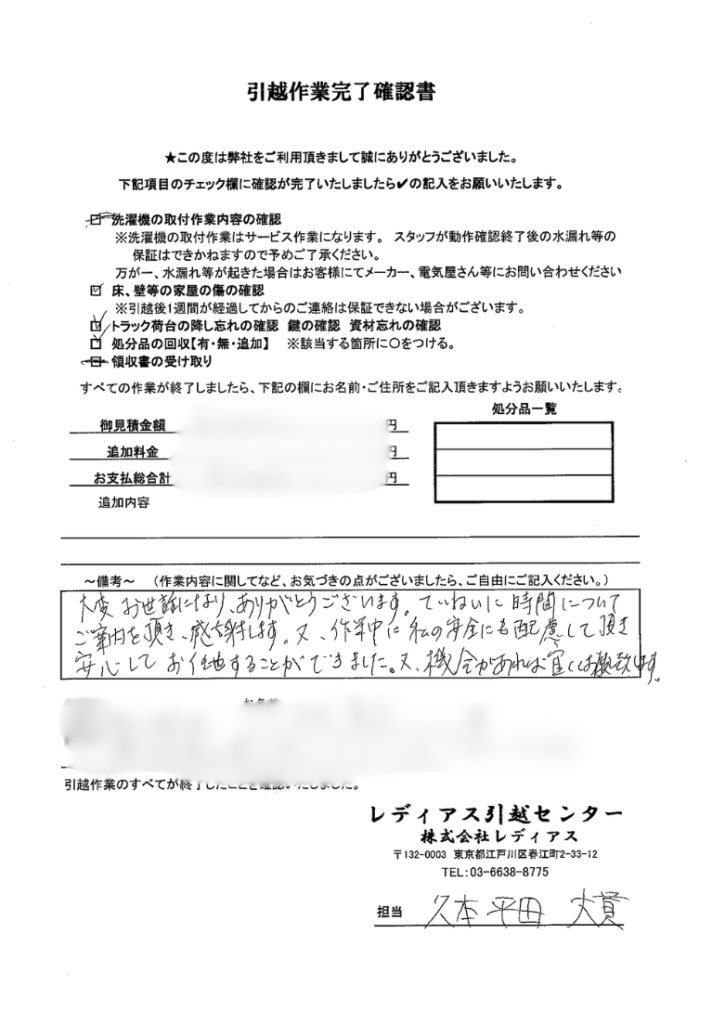 引越作業完了確認書
★この度は弊社をご利用頂きまして誠にありがとうございました。
下記項目のチェック欄に確認が完了いたしましたら✔の記入をお願いいたします。
洗濯機の取付作業内容の確認
※洗濯機の取付作業はサービス作業になります。 スタッフが動作確認終了後の水漏れ等の
保証はできかねますので予めご了承ください。
万が一、水漏れ等が起きた場合はお客様にてメーカー、電気屋さん等にお問い合わせください
☑ 床、壁等の家屋の傷の確認
※引越後1週間が経過してからのご連絡は保証できない場合がございます。
☑ トラック荷台の降し忘れの確認 鍵の確認 資材忘れの確認
□ 処分品の回収【有・無・追加】 ※該当する箇所に○をつける。
領収書の受け取り
すべての作業が終了しましたら、下記の欄にお名前・ご住所をご記入頂きますようお願いいたします。
処分品一覧
御見積金額 円
追加料金 円
お支払総合計 円
追加内容
～備考～ （作業内容に関してなど、お気づきの点がございましたら、ご自由にご記入ください。）
大変お世話になり、ありがとうございます。ていねいに時間について
ご案内を頂き、感謝します。又、作業中に私の安全にも配慮して頂き
安心してお任せすることができました。又、機会があれば宜しくお願い致します。
引越作業のすべてが終了したことを確認いたしました。
レディアス引越センター
株式会社レディアス
〒132-0003 東京都江戸川区春江町2-33-12
TEL:03-6638-8775
担当 久本 平田 大貫